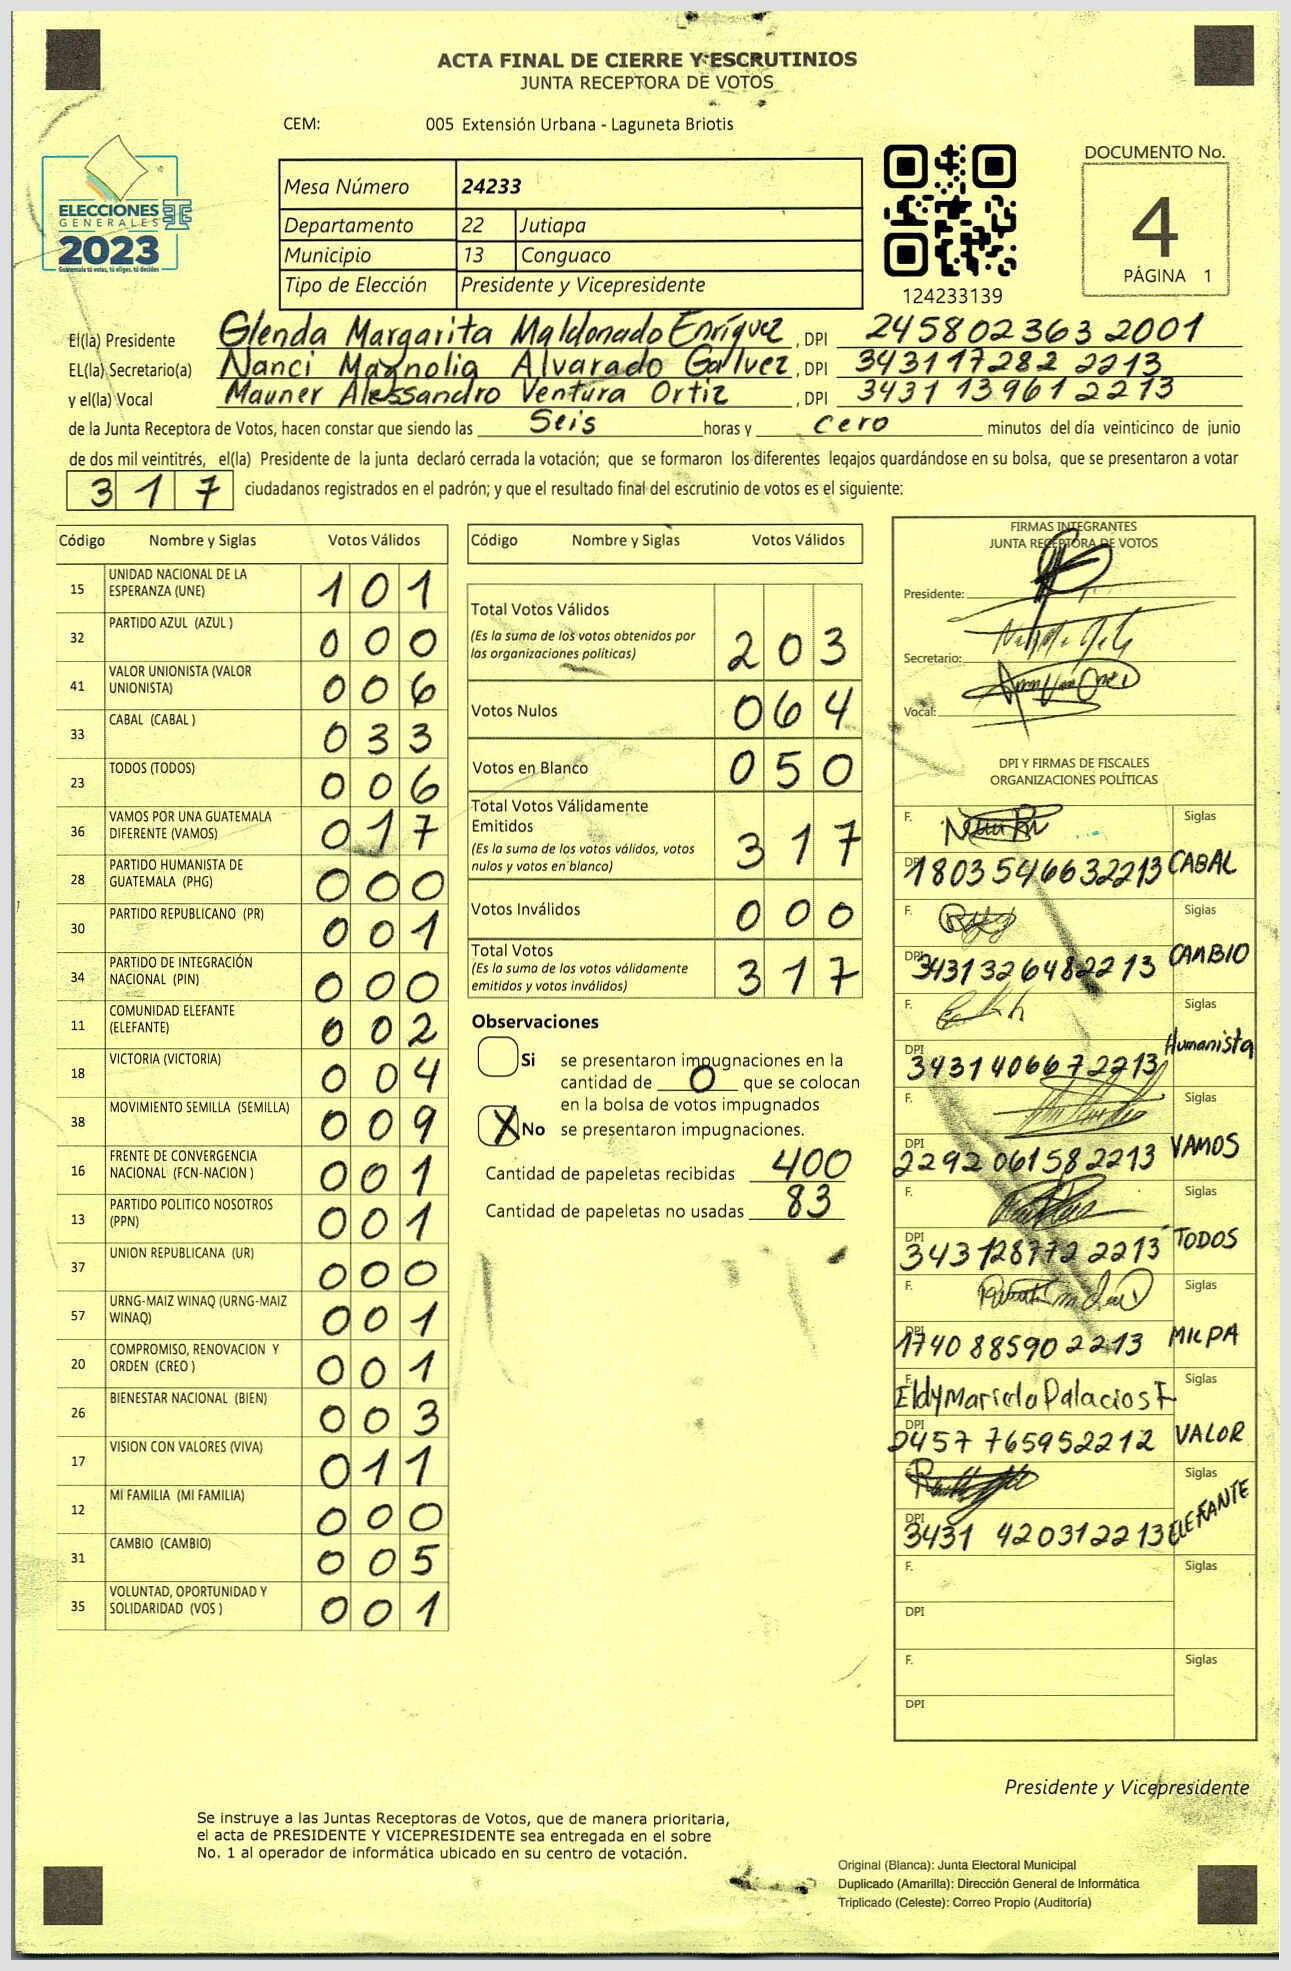 ACTA FINAL DE CIERRE Y ESCRUTINIOS
JUNTA RECEPTORA DE VOTOS
CEM: 005 Extensión Urbana - Laguneta Briotis
ELECCIONES
GENERALES
2023
Guatemala tú votas, tú eliges, tú decides
Mesa Número 24233
Departamento 22 Jutiapa
Municipio 13 Conguaco
Tipo de Elección Presidente y Vicepresidente
124233139
DOCUMENTO No.
4
PÁGINA 1
El(la) Presidente Glenda Margarita Maldonado Enríquez, DPI 245802363 2001
EL(la) Secretario(a) Nanci Magnolia Alvarado Galvez, DPI 343117282 2213
y el(la) Vocal Mauner Alessandro Ventura Ortiz, DPI 3431 13961 2213
de la Junta Receptora de Votos, hacen constar que siendo las Seis horas y cero minutos del día veinticinco de junio
de dos mil veintitrés, el(la) Presidente de la junta declaró cerrada la votación; que se formaron los diferentes legajos guardándose en su bolsa, que se presentaron a votar
317 ciudadanos registrados en el padrón; y que el resultado final del escrutinio de votos es el siguiente:
Código Nombre y Siglas Votos Válidos
15 UNIDAD NACIONAL DE LA ESPERANZA (UNE) 101
32 PARTIDO AZUL (AZUL ) 000
41 VALOR UNIONISTA (VALOR UNIONISTA) 006
33 CABAL (CABAL ) 033
23 TODOS (TODOS) 006
36 VAMOS POR UNA GUATEMALA DIFERENTE (VAMOS) 017
28 PARTIDO HUMANISTA DE GUATEMALA (PHG) 000
30 PARTIDO REPUBLICANO (PR) 001
34 PARTIDO DE INTEGRACIÓN NACIONAL (PIN) 000
11 COMUNIDAD ELEFANTE (ELEFANTE) 002
18 VICTORIA (VICTORIA) 004
38 MOVIMIENTO SEMILLA (SEMILLA) 009
16 FRENTE DE CONVERGENCIA NACIONAL (FCN-NACION ) 001
13 PARTIDO POLITICO NOSOTROS (PPN) 001
37 UNION REPUBLICANA (UR) 000
57 URNG-MAIZ WINAQ (URNG-MAIZ WINAQ) 001
20 COMPROMISO, RENOVACION Y ORDEN (CREO ) 001
26 BIENESTAR NACIONAL (BIEN) 003
17 VISION CON VALORES (VIVA) 011
12 MI FAMILIA (MI FAMILIA) 000
31 CAMBIO (CAMBIO) 005
35 VOLUNTAD, OPORTUNIDAD Y SOLIDARIDAD (VOS ) 001
Código Nombre y Siglas Votos Válidos
Total Votos Válidos 203
(Es la suma de los votos obtenidos por
las organizaciones políticas)
Votos Nulos 064
Votos en Blanco 050
Total Votos Válidamente
Emitidos 317
(Es la suma de los votos válidos, votos
nulos y votos en blanco)
Votos Inválidos 000
Total Votos 317
(Es la suma de los votos válidamente
emitidos y votos inválidos)
Observaciones
Si se presentaron impugnaciones en la
cantidad de 0 que se colocan
en la bolsa de votos impugnados
X No se presentaron impugnaciones.
Cantidad de papeletas recibidas 400
Cantidad de papeletas no usadas 83
FIRMAS INTEGRANTES
JUNTA RECEPTORA DE VOTOS
Presidente:
Secretario:
Vocal:
DPI Y FIRMAS DE FISCALES
ORGANIZACIONES POLÍTICAS
F. Siglas
DPI 1803546632213 CABAL
F. Siglas
DPI 3431326482213 CAMBIO
F. Siglas
DPI 3431406672213 Humanista
F. Siglas
DPI 2292 06158 2213 VAMOS
F. Siglas
DPI 343128772 2213 TODOS
F. Siglas
DPI 1740 88590 2213 MILPA
F. Eldy Mariela Palacios F. Siglas
DPI 2457 765952212 VALOR
F. Siglas
DPI 3431 420312213 ELEFANTE
F. Siglas
DPI
F. Siglas
DPI
Presidente y Vicepresidente
Se instruye a las Juntas Receptoras de Votos, que de manera prioritaria,
el acta de PRESIDENTE Y VICEPRESIDENTE sea entregada en el sobre
No. 1 al operador de informática ubicado en su centro de votación.
Original (Blanca): Junta Electoral Municipal
Duplicado (Amarilla): Dirección General de Informática
Triplicado (Celeste): Correo Propio (Auditoría)